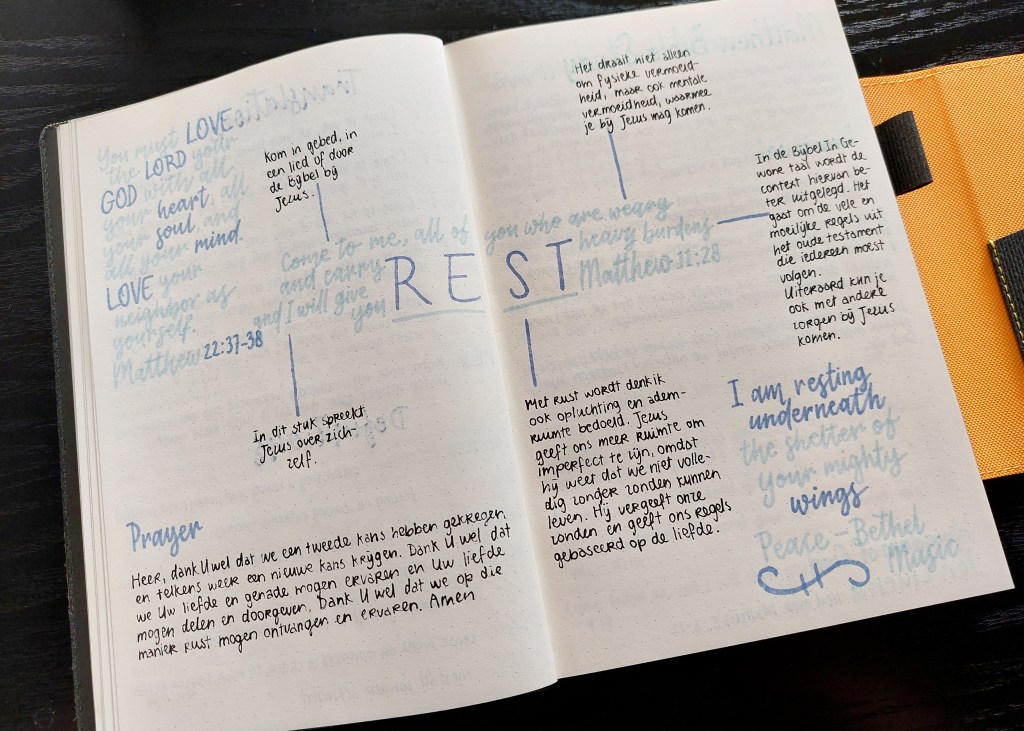 You must LOVE
the LORD your
GOD with all
your heart, all
your soul, and
all your mind.
LOVE your
neighbor as
yourself.
Matthew 22:37-38
Kom in gebed, in
een lied of door
de Bijbel bij
Jezus.
Come to me, all of you who are weary
and carry heavy burdens
and I will give
you REST
Matthew 11:28
In dit stuk spreekt
Jezus over zich-
zelf.
Prayer
Heer, dank U wel dat we een tweede kans hebben gekregen
en telkens weer een nieuwe kans krijgen. Dank U wel dat
we Uw liefde en genade mogen ervaren en Uw liefde
mogen delen en doorgeven. Dank U wel dat we op die
manier rust mogen ontvangen en ervaren. Amen
Het draait niet alleen
om fysieke vermoeid-
heid, maar ook mentale
vermoeidheid, waarmee
je bij Jezus mag komen.
In de Bijbel In Ge-
wone taal wordt de
context hiervan be-
ter uitgelegd. Het
gaat om de vele en
moeilijke regels uit
het oude testament
die iedereen moest
volgen.
Uiteraard kun je
ook met andere
zorgen bij Jezus
komen.
Met rust wordt denk ik
ook opluchting en adem-
ruimte bedoeld. Jezus
geeft ons meer ruimte om
imperfect te zijn, omdat
hij weet dat we niet volle-
dig zonder zonden kunnen
leven. Hij vergeeft onze
zonden en geeft ons regels
gebaseerd op de liefde.
I am resting
underneath
the shelter of
your mighty
wings
Peace - Bethel
Music